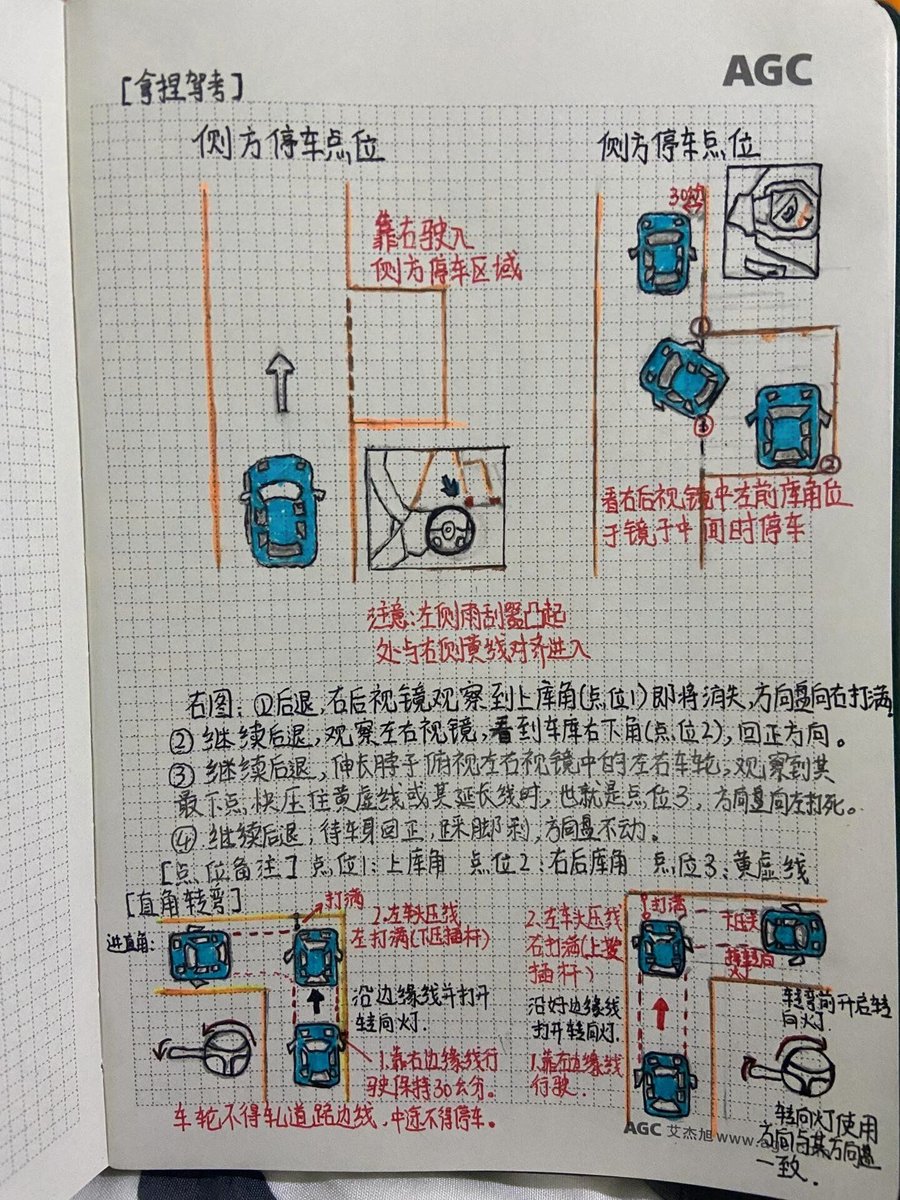 AGC
[拿捏驾考]
侧方停车点位
侧方停车点位
靠右驶入
侧方停车区域
30公分
①
③
②
看右后视镜中左前库角位
于镜子中间时停车
注意:左侧雨刮器凸起
处与右侧黄线对齐进入
右图:①后退,右后视镜观察到上库角(点位1)即将消失,方向盘向右打满
②继续后退,观察左右视镜,看到车库右下角(点位2),回正方向。
③继续后退,伸长脖子俯视左右视镜中的左右车轮,观察到其
最下点快压住黄虚线或其延长线时,也就是点位3,方向盘向左打死。
④继续后退,待车身回正,踩脚刹,方向盘不动。
[点位备注]点位1:上库角 点位2:右后库角 点位3:黄虚线
[直角转弯]
进直角:
打满
2.左车头压线
左打满(下压插杆)
沿边缘线并打开
转向灯.
1.靠右边缘线行
驶保持30公分。
车轮不得轧道路边线,中途不得停车。
打满
2.左车头压线
右打满(上拨
插杆)
沿好边缘线
打开转向灯.
1.靠左边缘线
行驶.
转弯前开启转
向灯
转向灯使用
方向与其方向盘
一致.
AGC 艾杰旭 www.ag